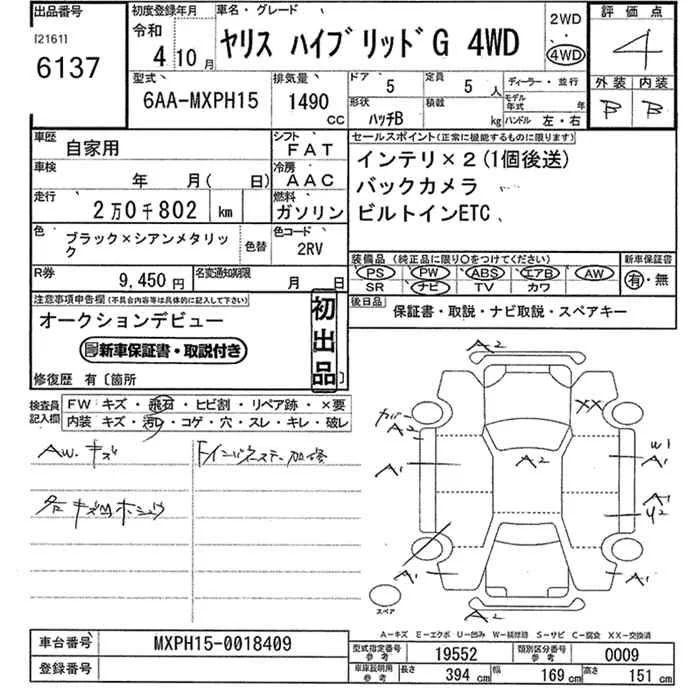 出品番号
[2161]
6137
初度登録年月
令和
4 10 月
車名・グレード
ヤリス ハイブリッドG 4WD
2WD
・
4WD
評価点
4
外装 内装
B B
型式
6AA-MXPH15
排気量
1490
CC
ドア
5
定員
5 人
形状
ハッチB
積載
kg
ディーラー・並行
モデル年式 年
ハンドル 左・右
車歴
自家用
シフト
FAT
車検
年 月( 日)
冷房
AAC
走行
2万0千802 km
燃料
ガソリン
色
ブラック×シアンメタリック
色替
色コード
2RV
R券
9,450円
名変通知期限
月 日
セールスポイント(正常に機能するものに限ります)
インテリ×2(1個後送)
バックカメラ
ビルトインETC
装備品(純正品に限り○をつけてください)
PS PW ABS エアB AW
SR ナビ TV カワ
新車保証書
有・無
後日品
保証書・取説・ナビ取説・スペアキー
注意事項申告欄(不具合内容等は具体的に記入して下さい)
オークションデビュー
新車保証書・取説付き
初出品
修復歴 有〔箇所 〕
検査員記入欄
FW キズ・飛石・ヒビ割・リペア跡・×要
内装 キズ・汚レ・コゲ・穴・スレ・キレ・破レ
AW.キズ
A2
XX
A2
A2
A1
W1
A1
A1
A1
A1
A2
スペア
A-キズ E-エクボ U-凹み W-補修跡 S-サビ C-腐食 XX-交換済
車台番号
MXPH15-0018409
登録番号
型式指定番号
参考
19552
類別区分番号
参考
0009
車庫証明用
参考
長さ 394 cm 幅 169 cm 高さ 151 cm